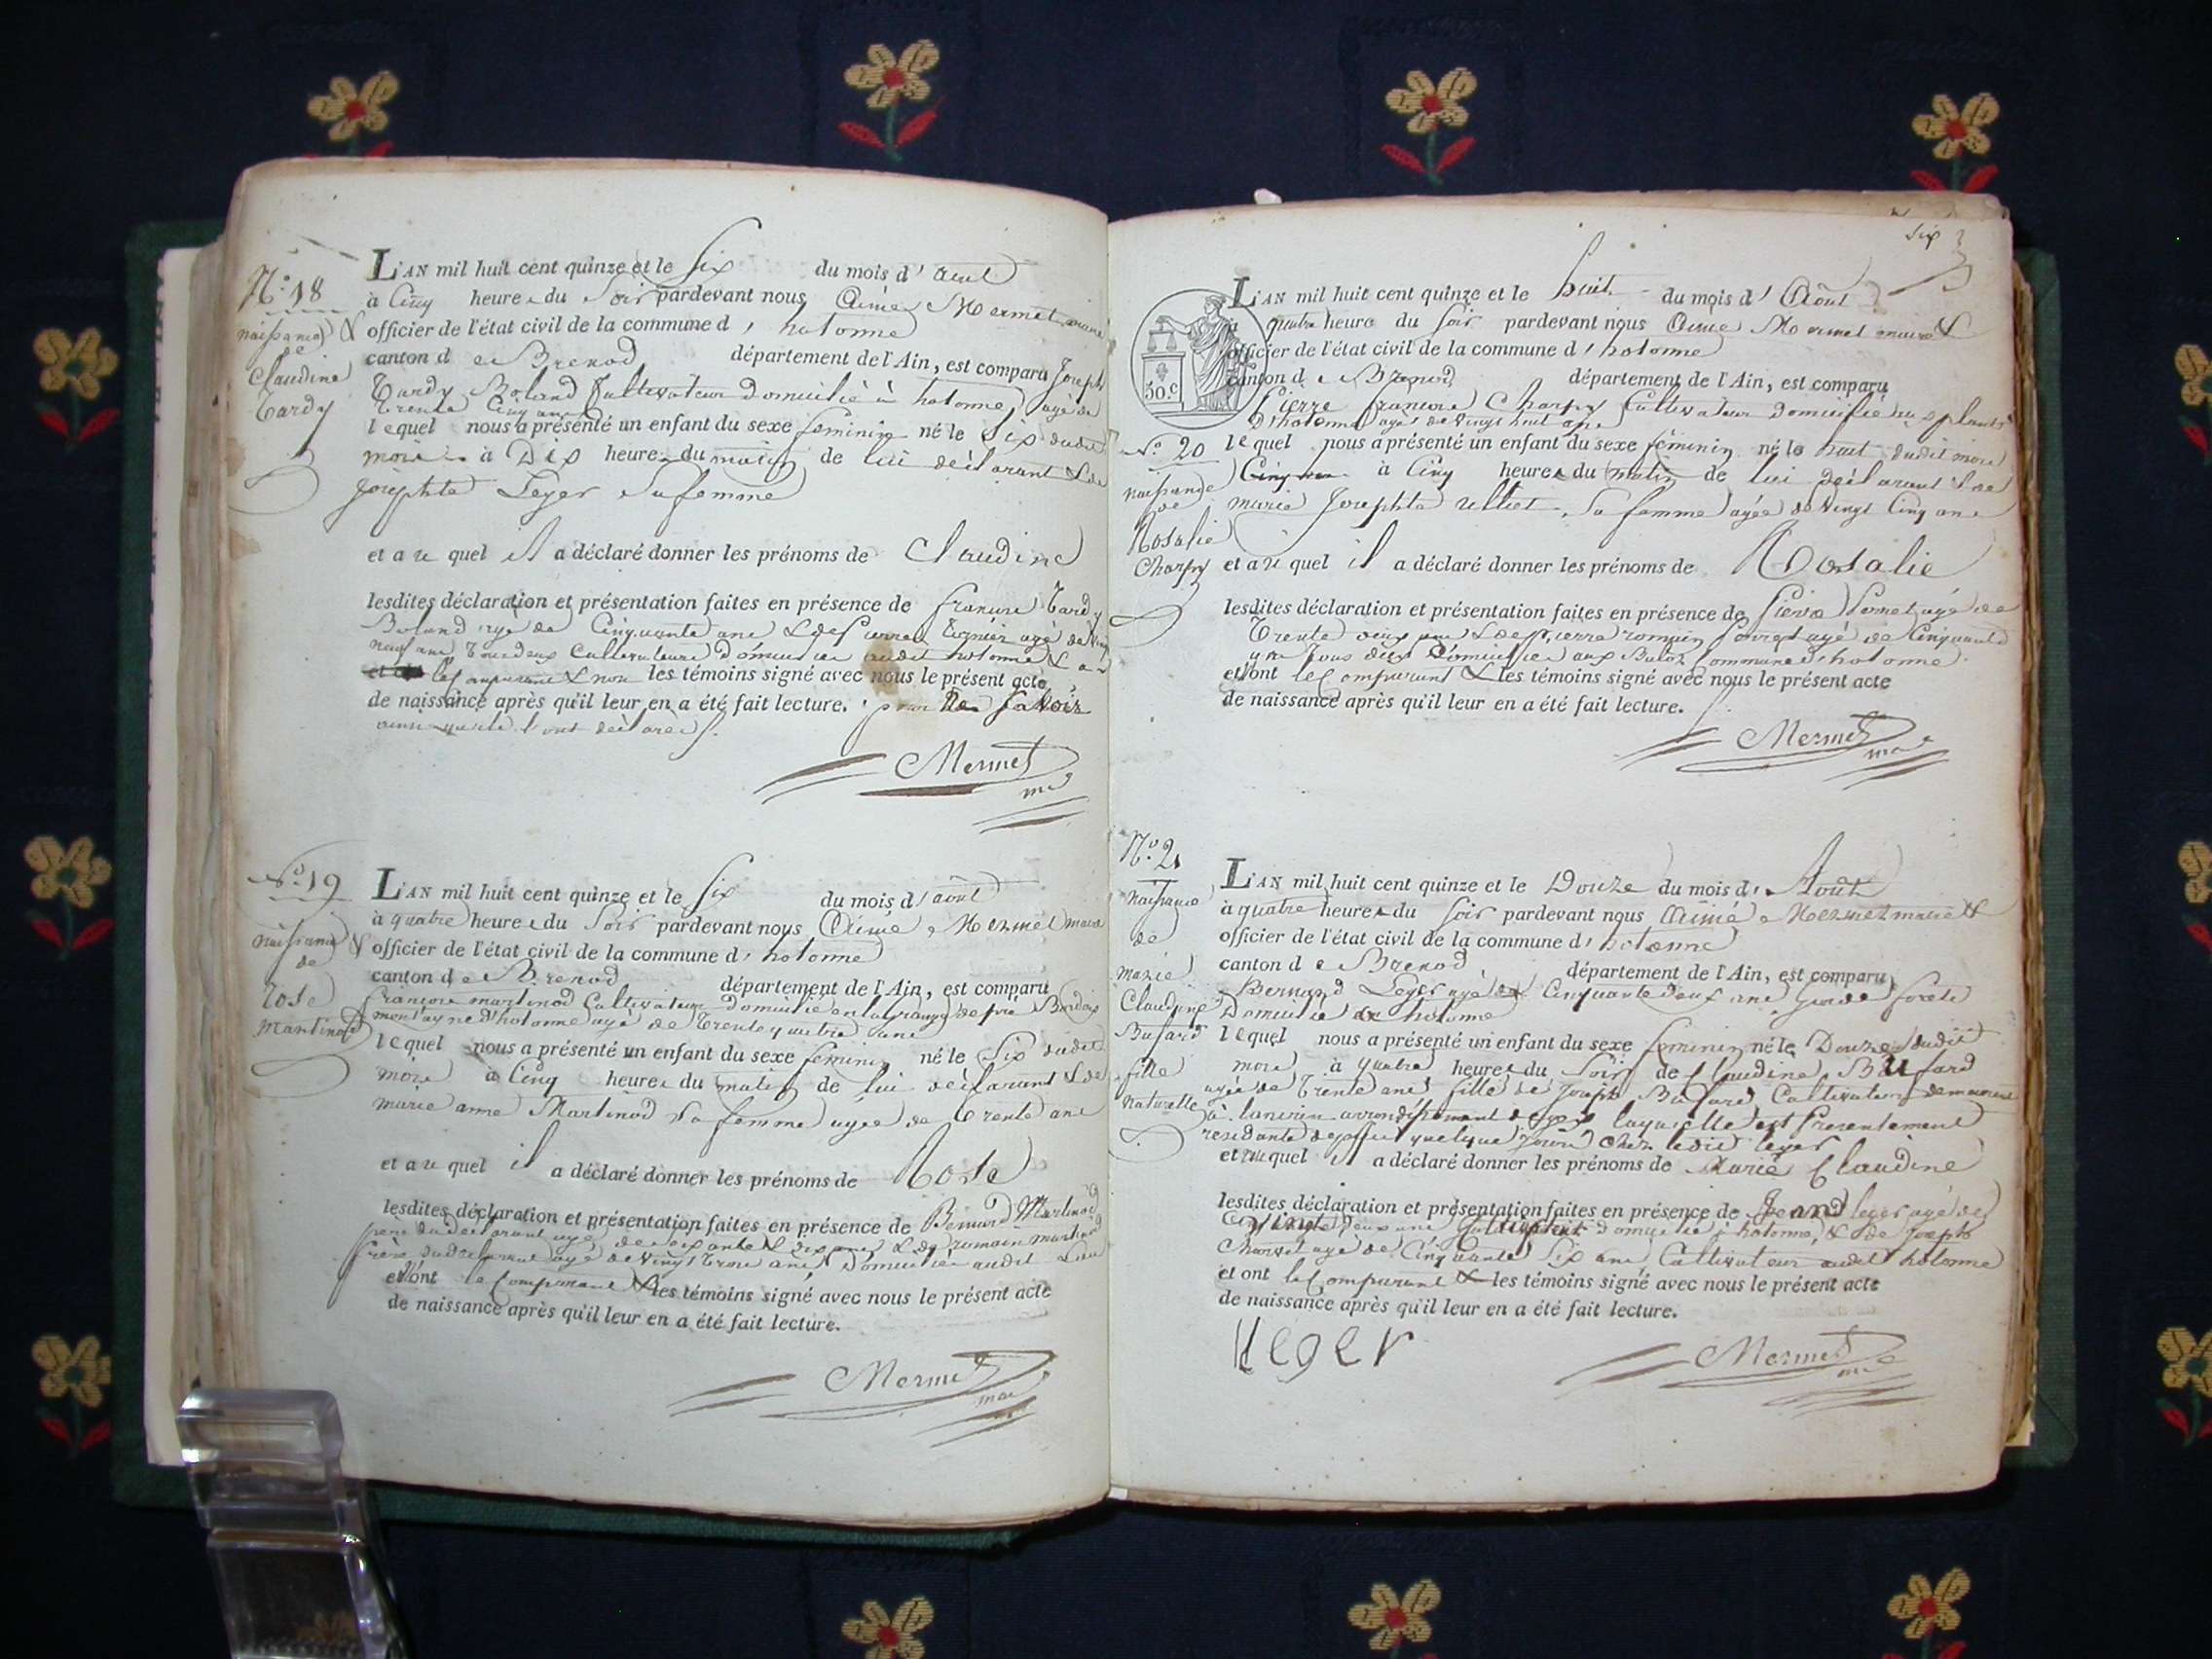 N.º 18
naissance
de
Claudine
Tardy
L'AN mil huit cent quinze et le Six du mois d' aout
à Cinq heures du Soir pardevant nous Aimé Mermet maire
& officier de l'état civil de la commune d' hotonne
canton de Brenod département de l'Ain, est comparu Joseph
Tardy Boland Cultivateur Domicilié à hotonne agé de
trente Cinq ans
lequel nous a présenté un enfant du sexe feminin né le Six dudit
mois à Dix heures du matin de lui déclarant & de
Josephte Leger Sa femme
et auquel il a déclaré donner les prénoms de Claudine
lesdites déclaration et présentation faites en présence de françois Tardy
Boland agé de Cinquante ans & de Pierre Tornier agé de vingt
neuf ans Tous deux Cultivateurs Domiciliés audit hotonne & a
le Comparant & non les témoins signé avec nous le présent acte
de naissance après qu'il leur en a été fait lecture. pour ne Savoir
ainsi qu'ils l'ont déclaré
Mermet
N.º 19
naissance
de
rose
Martinod
L'AN mil huit cent quinze et le Six du mois d' août
à quatre heures du Soir pardevant nous Aimé Mermet maire
& officier de l'état civil de la commune d' hotonne
canton de Brenod département de l'Ain, est comparu
françois martinod Cultivateur Domicilié en la grange de pré
montagne d'hotonne agé de Trente quatre ans
lequel nous a présenté un enfant du sexe feminin né le Six dudit
mois à Cinq heures du matin de lui déclarant & de
marie anne Martinod Sa femme agée de Trente ans
et auquel il a déclaré donner les prénoms de Rose
lesdites déclaration et présentation faites en présence de Bernard Martinod
père du déclarant agé de soixante & dix ans & de romain martinod
frère du déclarant agé de vingt Trois ans Domiciliés audit lieu
et ont le Comparant & les témoins signé avec nous le présent acte
de naissance après qu'il leur en a été fait lecture.
Mermet
six
30.c
N.º 20
naissance
de
Rosalie
Charpy
L'AN mil huit cent quinze et le huit du mois d' Aôut
à quatre heure du soir pardevant nous Aimé Mermet maire &
officier de l'état civil de la commune d' hotonne
canton de Brenod département de l'Ain, est comparu
Pierre françois Charpy Cultivateur domicilié aux plans
D'hotonne agé de vingt huit ans
lequel nous a présenté un enfant du sexe féminin né le huit dudit mois
à Cinq heures du matin de lui déclarant & de
marie Josephte Sa femme agée de vingt Cinq ans
et auquel il a déclaré donner les prénoms de Rosalie
lesdites déclaration et présentation faites en présence de Pierre agé de
Trente deux ans & de Pierre romain agé de Cinquante
un Tous deux Domiciliés aux Commune d'hotonne.
et ont le Comparant & les témoins signé avec nous le présent acte
de naissance après qu'il leur en a été fait lecture.
Mermet
N.º 21
Naissance
de
marie
Claudine
Bufard
fille
naturelle
L'AN mil huit cent quinze et le Douze du mois d' Août
à quatre heures du soir pardevant nous Aimé Mermet maire &
officier de l'état civil de la commune d' hotonne
canton de Brenod département de l'Ain, est comparu
Bernard Leger agé de Cinquante deux ans garde foréts
Domicilié à hotonne
lequel nous a présenté un enfant du sexe feminin né le Douze dudit
mois à quatre heures du Soir de Claudine Bufard
agée de Trente ans fille de Joseph Bufard Cultivateur demeurant
à lancrin arrondissement de gex laquelle est presentement
residante depuis quelque jours chez ledit leger
et auquel il a déclaré donner les prénoms de Marie Claudine
lesdites déclaration et présentation faites en présence de Jean leger agé de
vingt deux ans Cultivateur domicilié à hotonne, & de Joseph
Charvet agé de Cinquante Six ans, Cultivateur audit hotonne
et ont le Comparant & les témoins signé avec nous le présent acte
de naissance après qu'il leur en a été fait lecture.
leger
Mermet